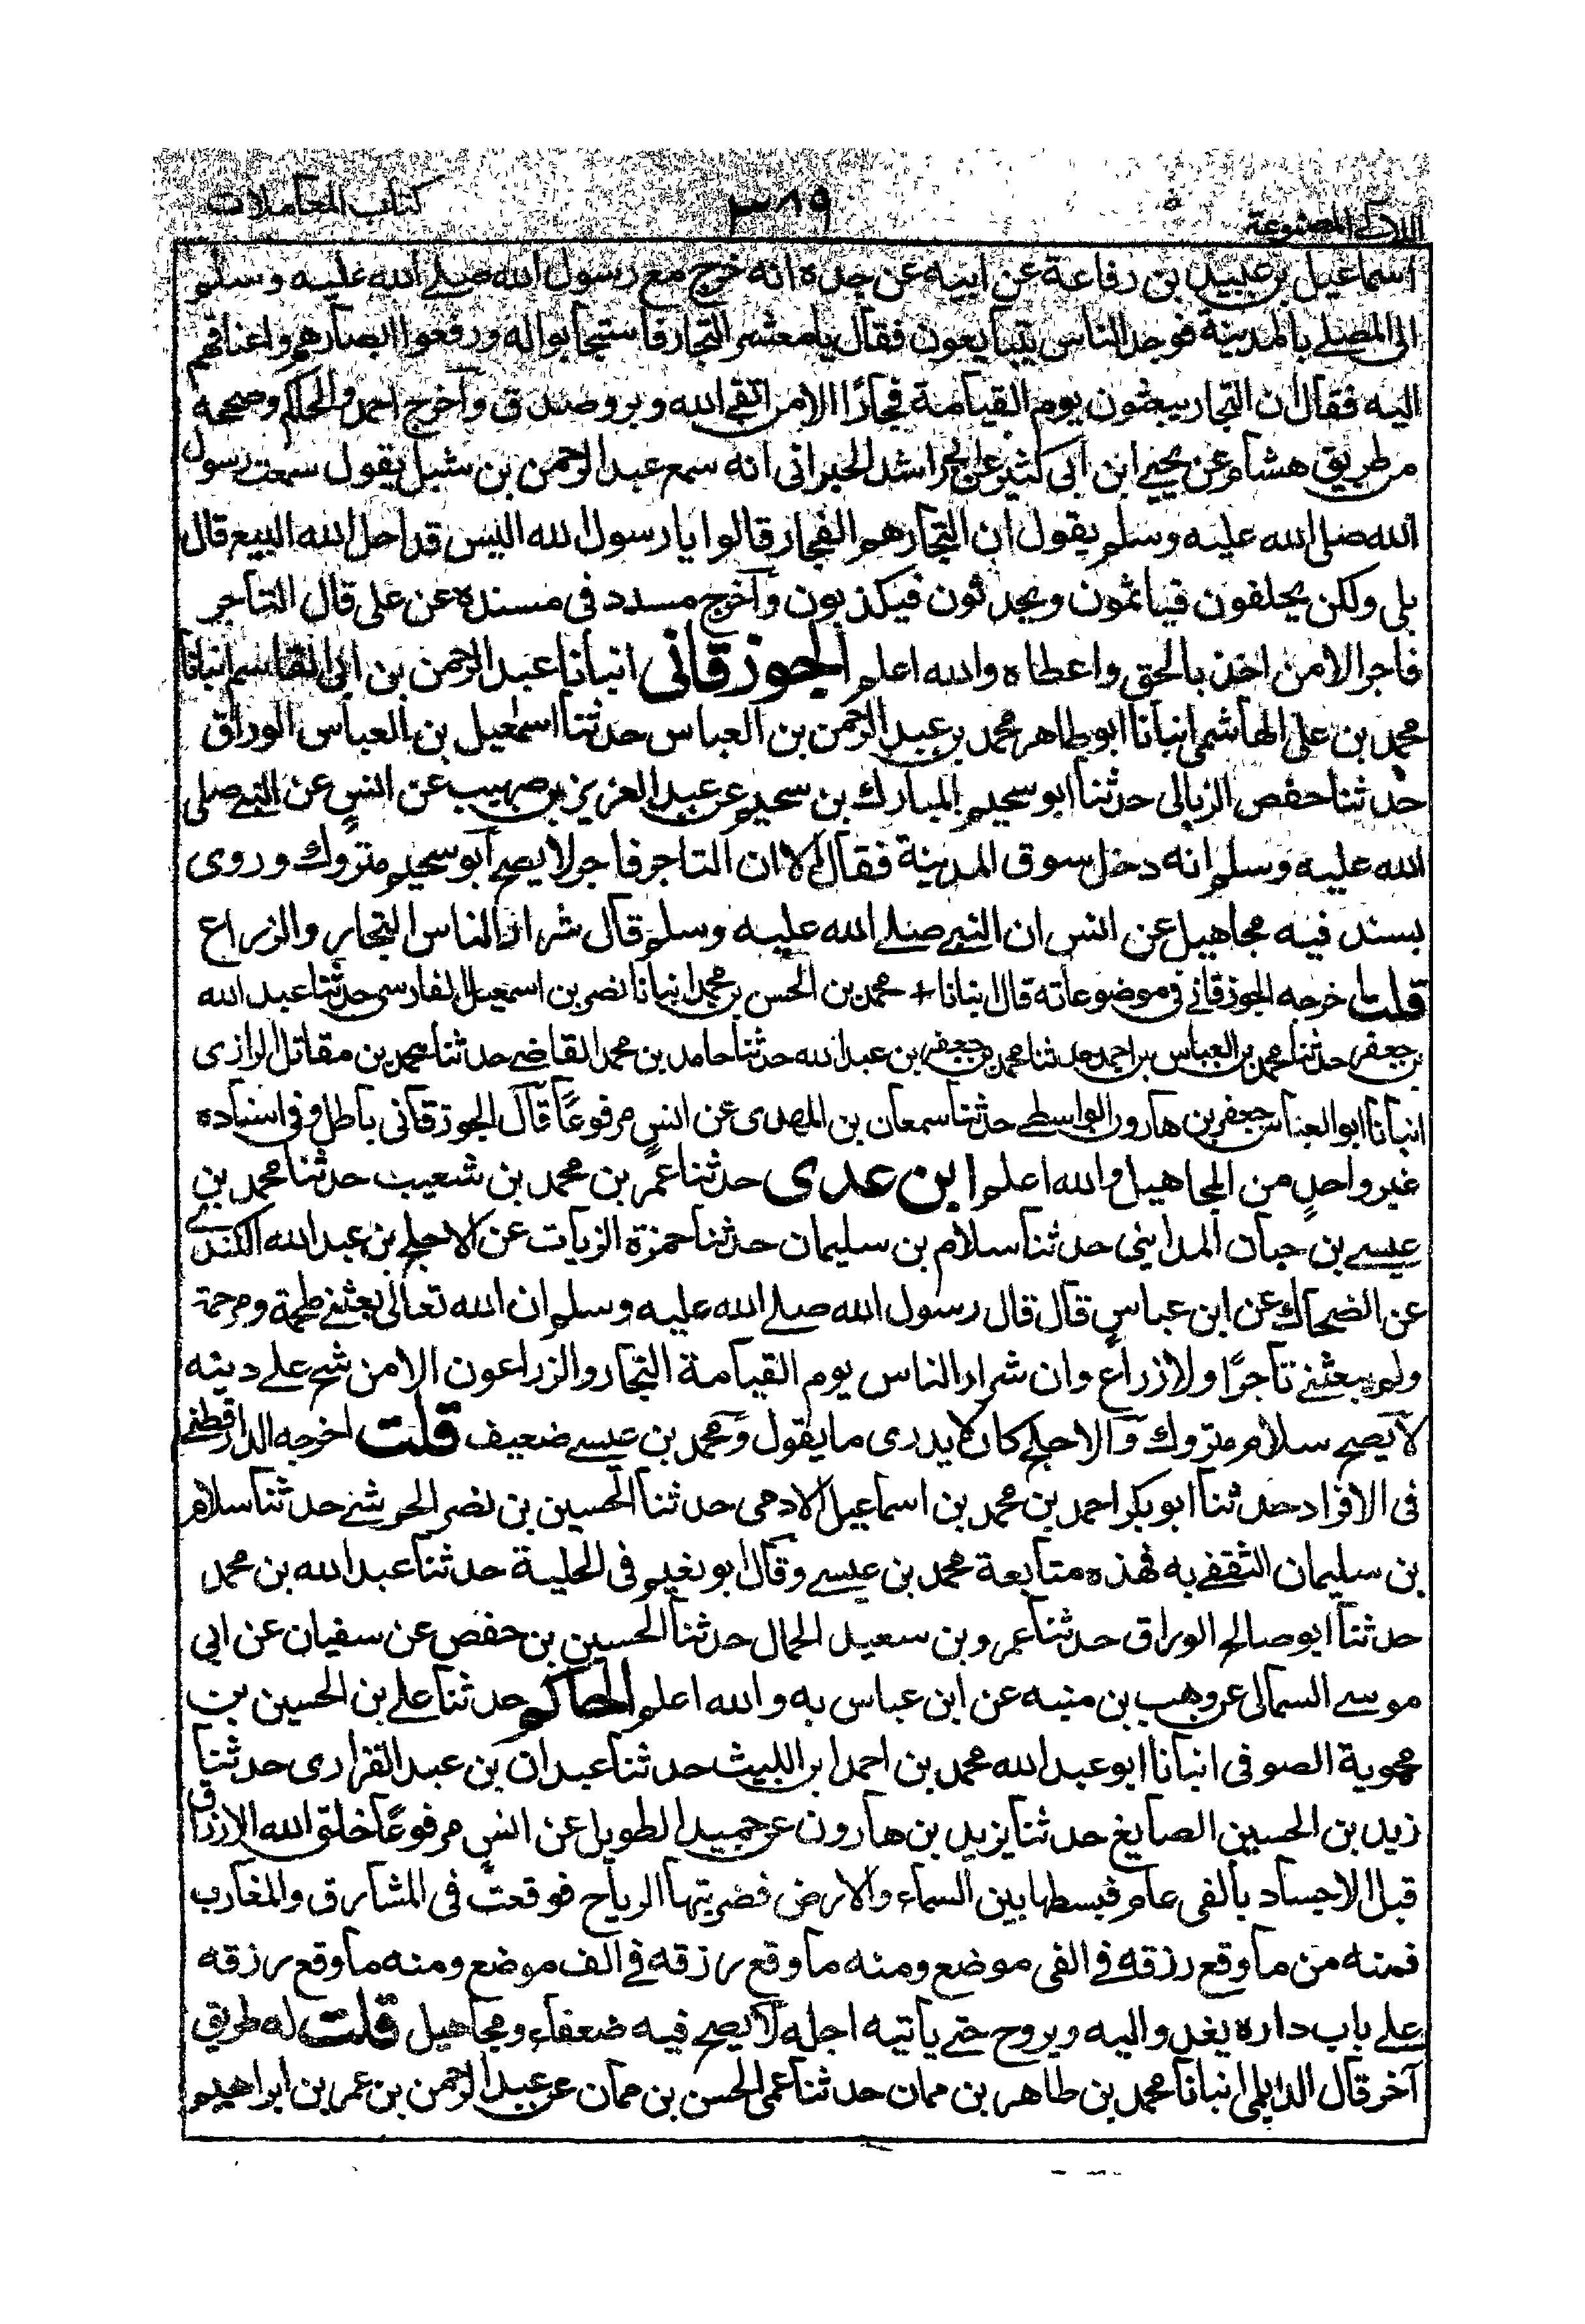 اللآلى المصنوعة
٣٨٩
كتاب المعاملات
اسماعيل بن عبيد بن رفاعة عن ابيه عن جده انه خرج مع رسول الله صلے الله عليه وسلم
الى المصلے بالمدينة فوجد الناس يتبايعون فقال يا معشر التجار فاستجابوا له ورفعوا ابصارهم واعناقهم
اليه فقال ان التجار يبعثون يوم القيامة فجارًا الا من اتقى الله وبر وصدق وآخرج احمد والحاكم وصححه
من طريق هشام عن يحيے ابن ابى كثير عن ابى راشد الحبرانى انه سمع عبد الرحمن بن شبل يقول سمعت رسول
الله صلى الله عليه وسلم يقول ان التجار هم الفجار قالوا يا رسول الله اليس قد احل الله البيع قال
بلى ولكن يحلفون فياثمون ويحدثون فيكذبون وآخرج مسدد فى مسنده عن على قال التاجر
فاجر الا من اخذ بالحق واعطاه والله اعلم الجوزقانى انبانا عبد الرحمن بن ابى القاسم انبانا
محمد بن على الهاشمى انبانا ابو طاهر محمد بن عبد الرحمن بن العباس حدثنا اسمعيل بن العباس الوراق
حدثنا حفص الزبالى حدثنا ابو سحيم المبارك بن سحيم عن عبد العزيز بن صهيب عن انسٍ عن النبے صلى
الله عليه وسلم انه دخل سوق المدينة فقال الا ان التاجر فاجر لا يصح آبو سحيم متروك وروى
بسند فيه مجاهيل عن انس ان النبے صلے الله عليه وسلم قال شرار الناس التجار والزراع
قلت خرجه الجوزقانے فى موضوعاته قال انبانا + محمد بن الحسن بن محمد انبانا نصر بن اسمعيل الفارسى حدثنا عبد الله
بن جعفر حدثنا محمد بن العباس بن احمد حدثنا محمد بن جعفر بن عبد الله حدثنا حامد بن محمد القاضے حدثنا محمد بن مقاتل الرازى
انبانا ابو العباس جعفر بن هارون الواسطے حدثنا سمعان بن المهدى عن انسٍ مرفوعًا قال الجوزقانى باطل وفى اسناده
غير واحدٍ من المجاهيل والله اعلم ابن عدى حدثنا عمر بن محمد بن شعيب حدثنا محمد بن
عيسے بن حبان المداينى حدثنا سلام بن سليمان حدثنا حمزة الزيات عن الاجلح بن عبد الله الكندے
عن الضحاك عن ابن عباسٍ قال قال رسول الله صلے الله عليه وسلم ان الله تعالى بعثنے ملحمة ومرحمة
ولم يبعثنے تاجرًا ولا زراع وان شرار الناس يوم القيامة التجار والزراعون الا من شح علے دينه
لا يصح سلام متروك وَالاجلح كان لا يدرى ما يقول وَمحمد بن عيسے ضعيف قلت اخرجه الدارقطنے
فى الافراد حدثنا ابو بكر احمد بن محمد بن اسماعيل الادمى حدثنا الحسين بن نصر الحوشنے حدثنا سلام
بن سليمان الثقفے به فهذه متابعة محمد بن عيسے وقال ابو نعيم فى الحلية حدثنا عبد الله بن محمد
حدثنا ابو صالح الوراق حدثنا عمرو بن سعيد الحمال حدثنا الحسين بن حفص عن سفيان عن ابى
موسے السمالى عن وهب بن منبه عن ابن عباس به والله اعلم الحاكم حدثنا علے بن الحسين بن
محموية الصوفى انبانا ابو عبد الله محمد بن احمد ابن الليث حدثنا عبدان بن عبد القزارى حدثنا
زيد بن الحسين الصايغ حدثنا يزيد بن هارون عن حميد الطويل عن انسٍ مرفوعًا خلق الله الارزاق
قبل الاجساد بالفى عام فبسطها بين السماء والارض فضربتها الرياح فوقعت فى المشارق والمغارب
فمنه من ما وقع رزقه فے الفى موضع ومنه ما وقع رزقه فے الف موضع ومنه ما وقع رزقه
علے باب داره يغدو اليه ويروح حتے ياتيه اجله لا يصح فيه ضعفاء ومجاهيل قلت له طريق
آخر قال الديلمى انبانا محمد بن طاهر بن ممان حدثنا عمى الحسن بن ممان عن عبد الرحمن بن عمر بن ابراهيم